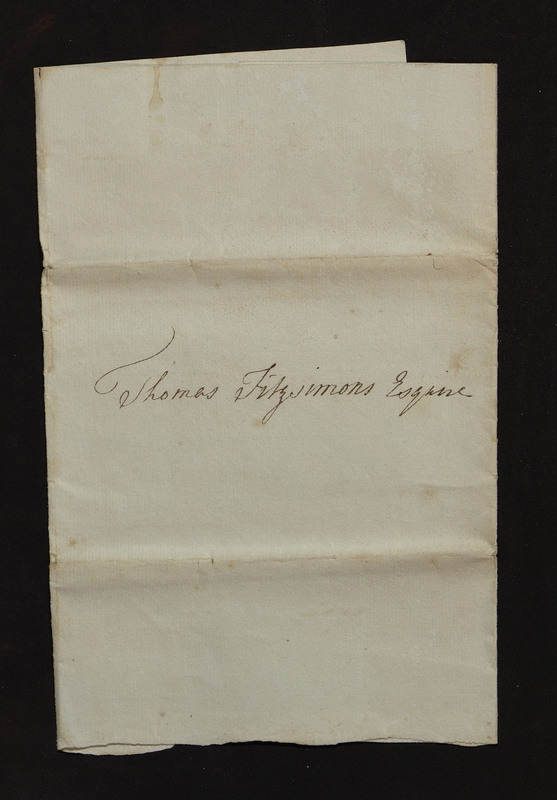 Thomas Fitzsimons Esquire